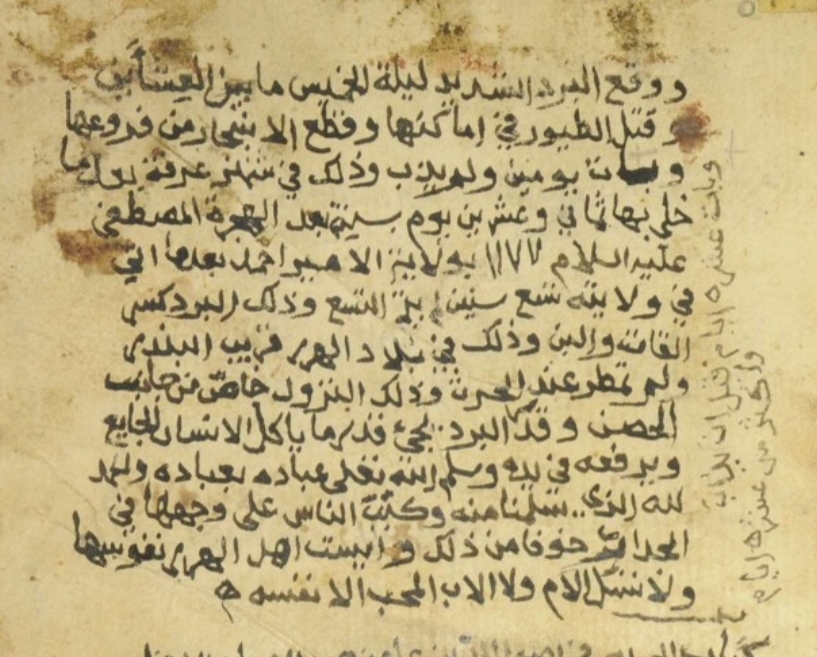 ووقع البرد الشديد ليلة الخميس ما بين العشائين
وقتل الطيور في اماكنها وقطع الاشجار من فروعها
وبات يومين ولم يذب وذلك في شهر عرفة يوم ما
خلي بها ثماني وعشرين يوم سنة بعد الهجرة المصطفى
عليه السلام ١١٧٧ بولاية الامير احمد بعدما اتي
في ولايته تسع سنين التسع وذلك البرد كسر
القاته والبن وذلك في بلاد الهرر قريب البندر
ولم تمطر عند الحرث وذلك النزول خاص من جانب
الحصن وقد البرد يجيء قدر ما ياكل الانسان الجايع
ويرفعه في يده وسلم الله تعلى عباده بعباده والحمد
لله الذي سلمنا منه وكبت الناس على وجهها في
خوفا من ذلك وايست اهل الهرر نفوسها
ولا تسل الام ولا الاب المحب الا نفسه
وبات عشرة ايام قبل ان يذاب
واكثر من عشرة ايام